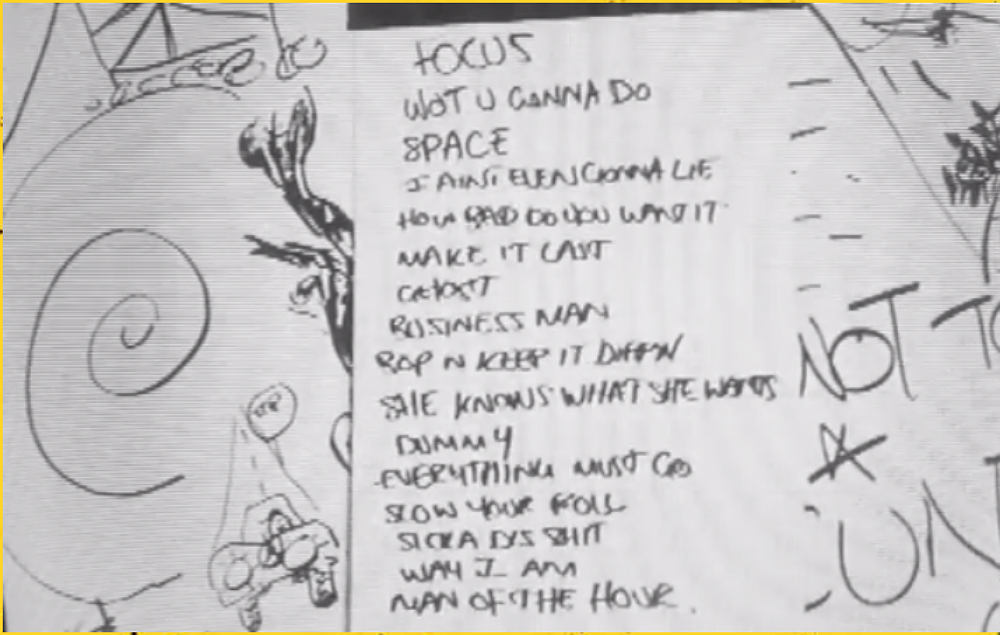 FOCUS
WOT U GANNA DO
SPACE
I AINT EVEN GONNA LIE
HOW BAD DO YOU WANT IT
MAKE IT LAST
GHOST
BUSINESS MAN
ROP N KEEP IT
SHE KNOWS WHAT SHE WANTS
DUMMY
EVERYTHING MUST GO
SLOW YOUR ROLL
SICKA DIS SHIT
WAY I AM
MAN OF THE HOUR.
NOT TO
UN